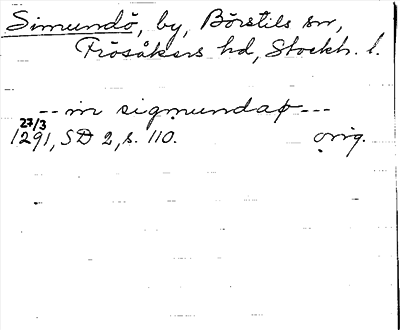 Simundö, by, Börstils sn,
Frösåkers hd, Stockh. l.
-- in sigmundaø ---
27/3
1291, SD 2, s. 110. orig.